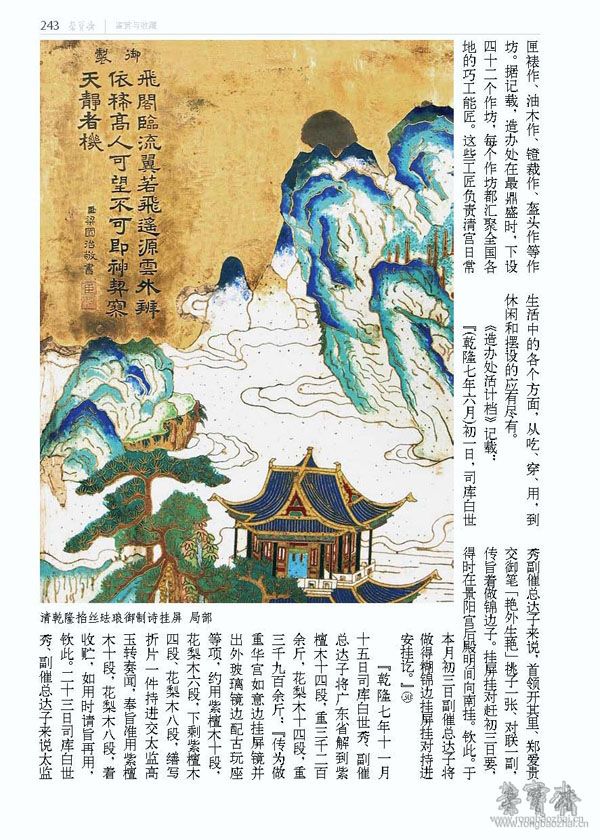 243 荣宝斋 鉴赏与收藏
御製
飛閣臨流翼若飛遙源雲外辨
依稀高人可望不可即神契寂
天靜者機
臣梁國治敬書
清乾隆掐丝珐琅御制诗挂屏 局部
匣裱作、油木作、镫裁作、盔头作等作
坊。据记载，造办处在最鼎盛时，下设
四十二个作坊，每个作坊都汇聚全国各
地的巧工能匠。这些工匠负责清宫日常
生活中的各个方面，从吃、穿、用，到
休闲和摆设的应有尽有。
《造办处活计档》记载：
『（乾隆七年六月）初一日，司库白世
秀副催总达子来说，首领开其里、郑爱贵
交御笔「艳外生艳」挑子一张、对联一副，
传旨着做锦边子。挂屏挂对赶初三日要，
得时在景阳宫后殿明间向南挂。钦此。于
本月初三日副催总达子将
做得糊锦边挂屏挂对持进
安挂讫。』
『乾隆七年十一月
十五日司库白世秀、副催
总达子将广东省解到紫
檀木十四段，重三千二百
余斤，花梨木十四段，重
三千九百余斤：『传为做
重华宫如意边挂屏镜并
出外玻璃镜边配古玩座
等项，约用紫檀木十段，
花梨木六段，下剩紫檀木
四段、花梨木八段，缮写
折片一件持进交太监高
玉转奏闻，奉旨准用紫檀
木十段，花梨木八段，着
收贮，如用时请旨再用，
钦此。二十三日司库白世
秀、副催总达子来说太监
荣宝斋
www.rongbaozhai.cn